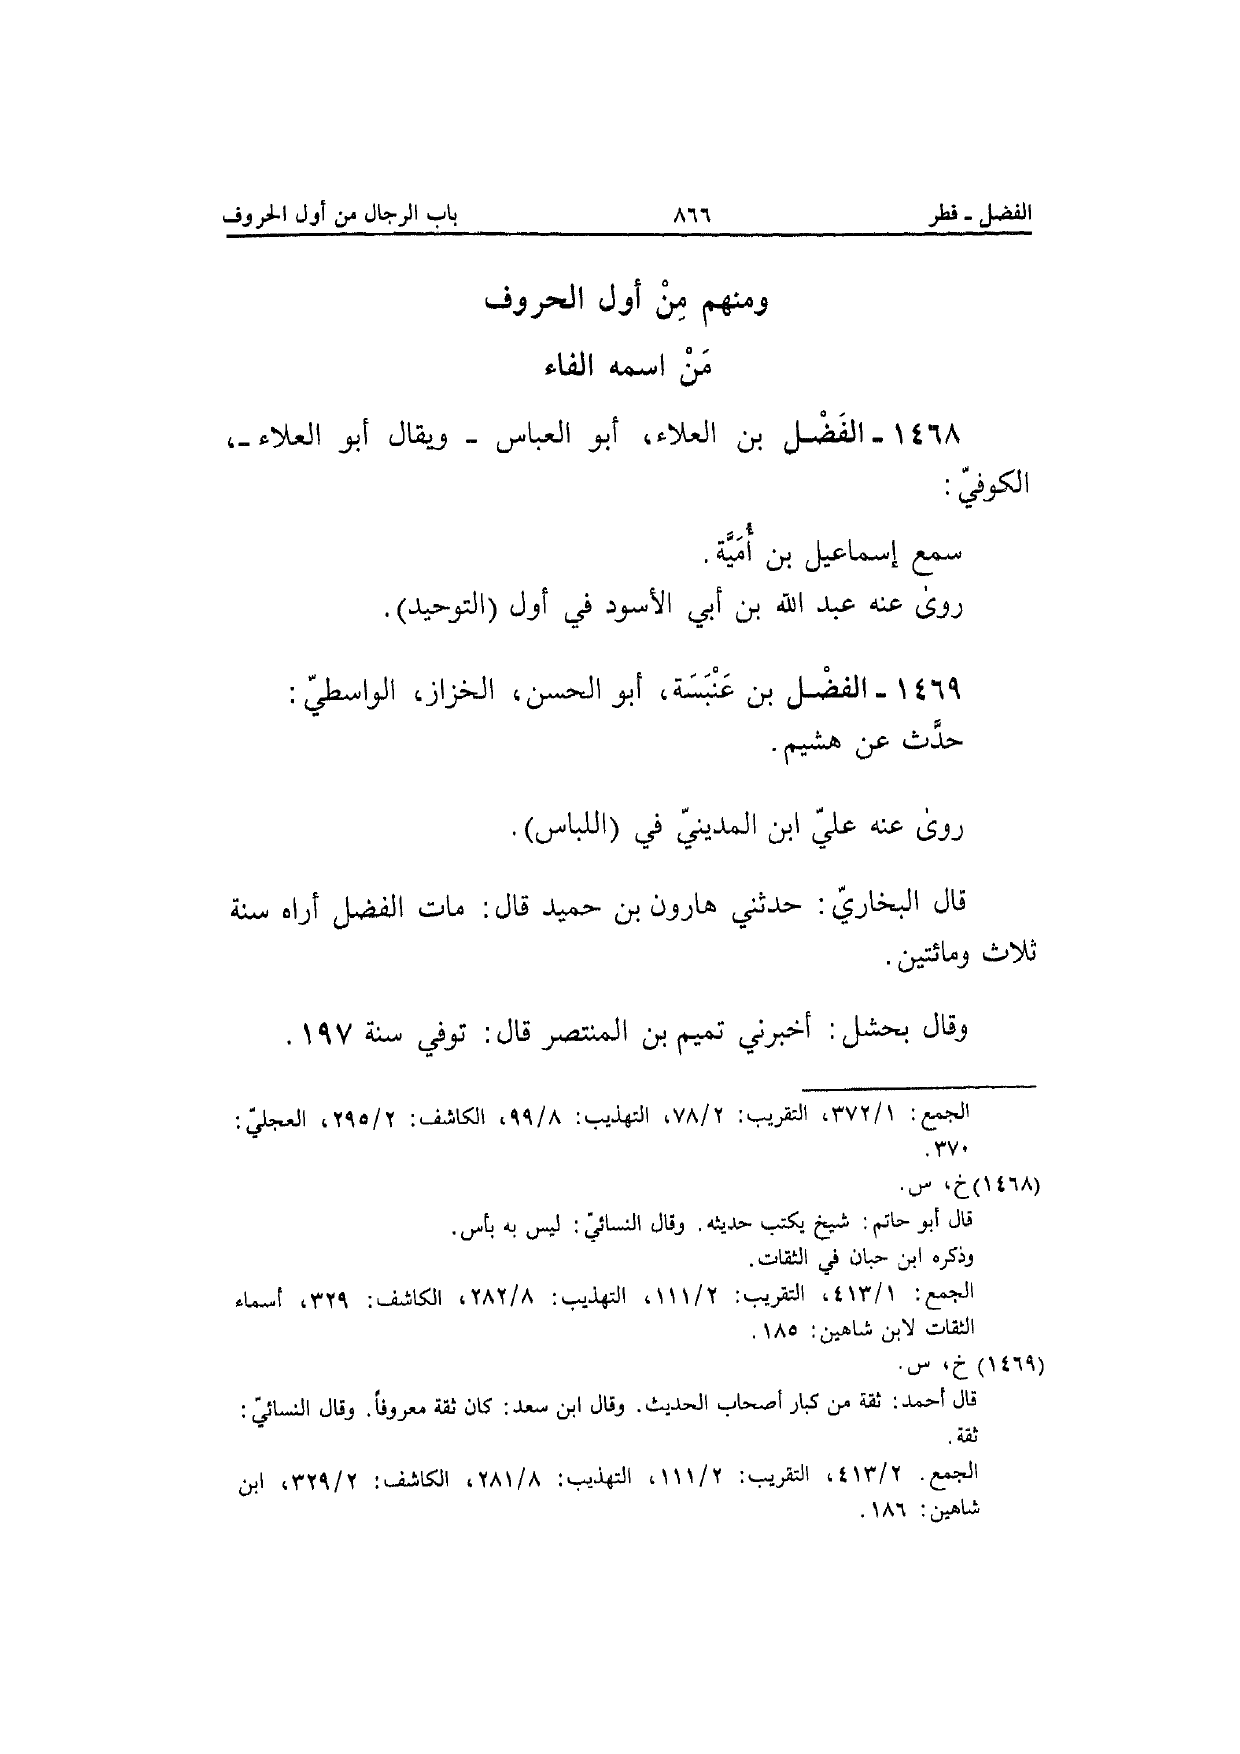 الفضل ـ قطر ٨٦٦ باب الرجال من أول الحروف
ومنهم مِنْ أول الحروف
مَنْ اسمه الفاء
١٤٦٨ ـ الفَضْل بن العلاء، أبو العباس ـ ويقال أبو العلاء ـ،
الكوفيّ:
سمع إسماعيل بن أُمَيَّة.
روىٰ عنه عبد الله بن أبي الأسود في أول (التوحيد).
١٤٦٩ ـ الفضْل بن عَنْبَسَة، أبو الحسن، الخزاز، الواسطيّ:
حدَّث عن هشيم.
روىٰ عنه عليّ ابن المدينيّ في (اللباس).
قال البخاريّ: حدثني هارون بن حميد قال: مات الفضل أراه سنة
ثلاث ومائتين.
وقال بحشل: أخبرني تميم بن المنتصر قال: توفي سنة ١٩٧.
الجمع: ٣٧٢/١، التقريب: ٧٨/٢، التهذيب: ٩٩/٨، الكاشف: ٢٩٥/٢، العجليّ:
٣٧٠.
(١٤٦٨)خ، س.
قال أبو حاتم: شيخ يكتب حديثه. وقال النسائيّ: ليس به بأس.
وذكره ابن حبان في الثقات.
الجمع: ٤١٣/١، التقريب: ١١١/٢، التهذيب: ٢٨٢/٨، الكاشف: ٣٢٩، أسماء
الثقات لابن شاهين: ١٨٥.
(١٤٦٩) خ، س.
قال أحمد: ثقة من كبار أصحاب الحديث. وقال ابن سعد: كان ثقة معروفاً. وقال النسائيّ:
ثقة.
الجمع. ٤١٣/٢، التقريب: ١١١/٢، التهذيب: ٢٨١/٨، الكاشف: ٣٢٩/٢، ابن
شاهين: ١٨٦.